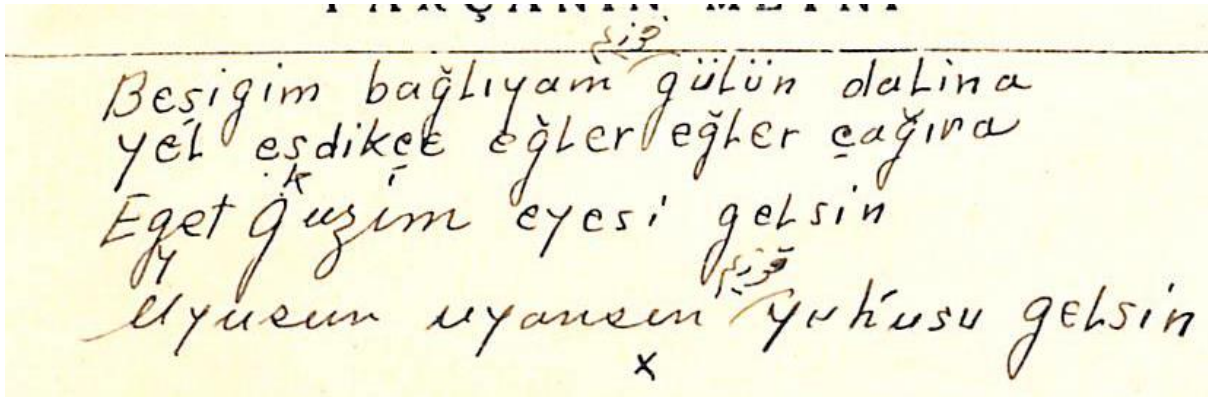 PARÇANIN METNİ
Beşigim bağlıyam gülün dalina
yel esdikçe eğler eğler çağına
Eget ğuzim eyesi gelsin
Uyusun uyansın yuhusu gelsin
x